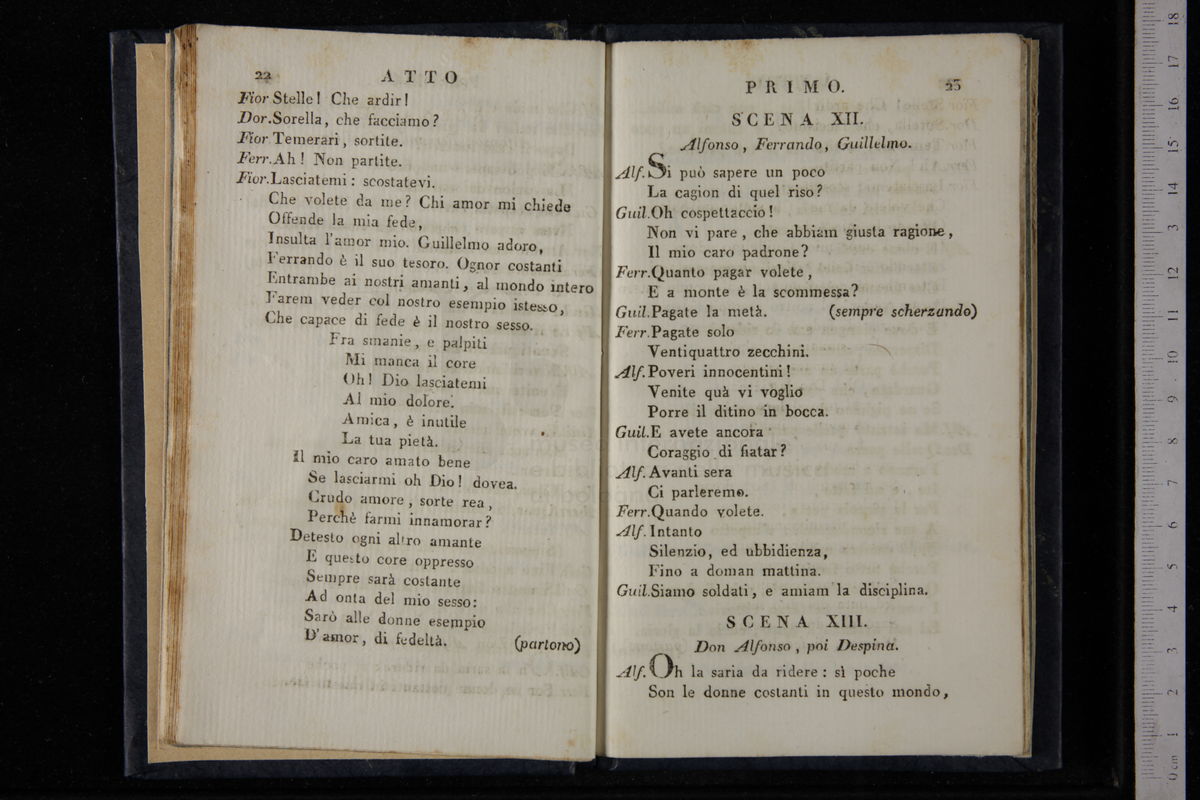 22 ATTO
Fior Stelle! Che ardir!
Dor. Sorella, che facciamo?
Fior Temerari, sortite.
Ferr. Ah! Non partite.
Fior. Lasciatemi: scostatevi.
Che volete da me? Chi amor mi chiede
Offende la mia fede,
Insulta l'amor mio. Guillelmo adoro,
Ferrando è il suo tesoro. Ognor costanti
Entrambe ai nostri amanti, al mondo intero
Farem veder col nostro esempio istesso,
Che capace di fede è il nostro sesso.
Fra smanie, e palpiti
Mi manca il core
Oh! Dio lasciatemi
Al mio dolore.
Amica, è inutile
La tua pietà.
Il mio caro amato bene
Se lasciarmi oh Dio! dovea.
Crudo amore, sorte rea,
Perchè farmi innamorar?
Detesto ogni altro amante
E questo core oppresso
Sempre sarà costante
Ad onta del mio sesso:
Sarò alle donne esempio
D'amor, di fedeltà. (partono)
PRIMO. 23
SCENA XII.
Alfonso, Ferrando, Guillelmo.
Alf. Si può sapere un poco
La cagion di quel riso?
Guil. Oh cospettaccio!
Non vi pare, che abbiam giusta ragione,
Il mio caro padrone?
Ferr. Quanto pagar volete,
E a monte è la scommessa?
Guil. Pagate la metà. (sempre scherzando)
Ferr. Pagate solo
Ventiquattro zecchini.
Alf. Poveri innocentini!
Venite quà vi voglio
Porre il ditino in bocca.
Guil. E avete ancora
Coraggio di fiatar?
Alf. Avanti sera
Ci parleremo.
Ferr. Quando volete.
Alf. Intanto
Silenzio, ed ubbidienza,
Fino a doman mattina.
Guil. Siamo soldati, e amiam la disciplina.
SCENA XIII.
Don Alfonso, poi Despina.
Alf. Oh la saria da ridere: sì poche
Son le donne costanti in questo mondo,
0 cm 1 2 3 4 5 6 7 8 9 10 11 12 13 14 15 16 17 18